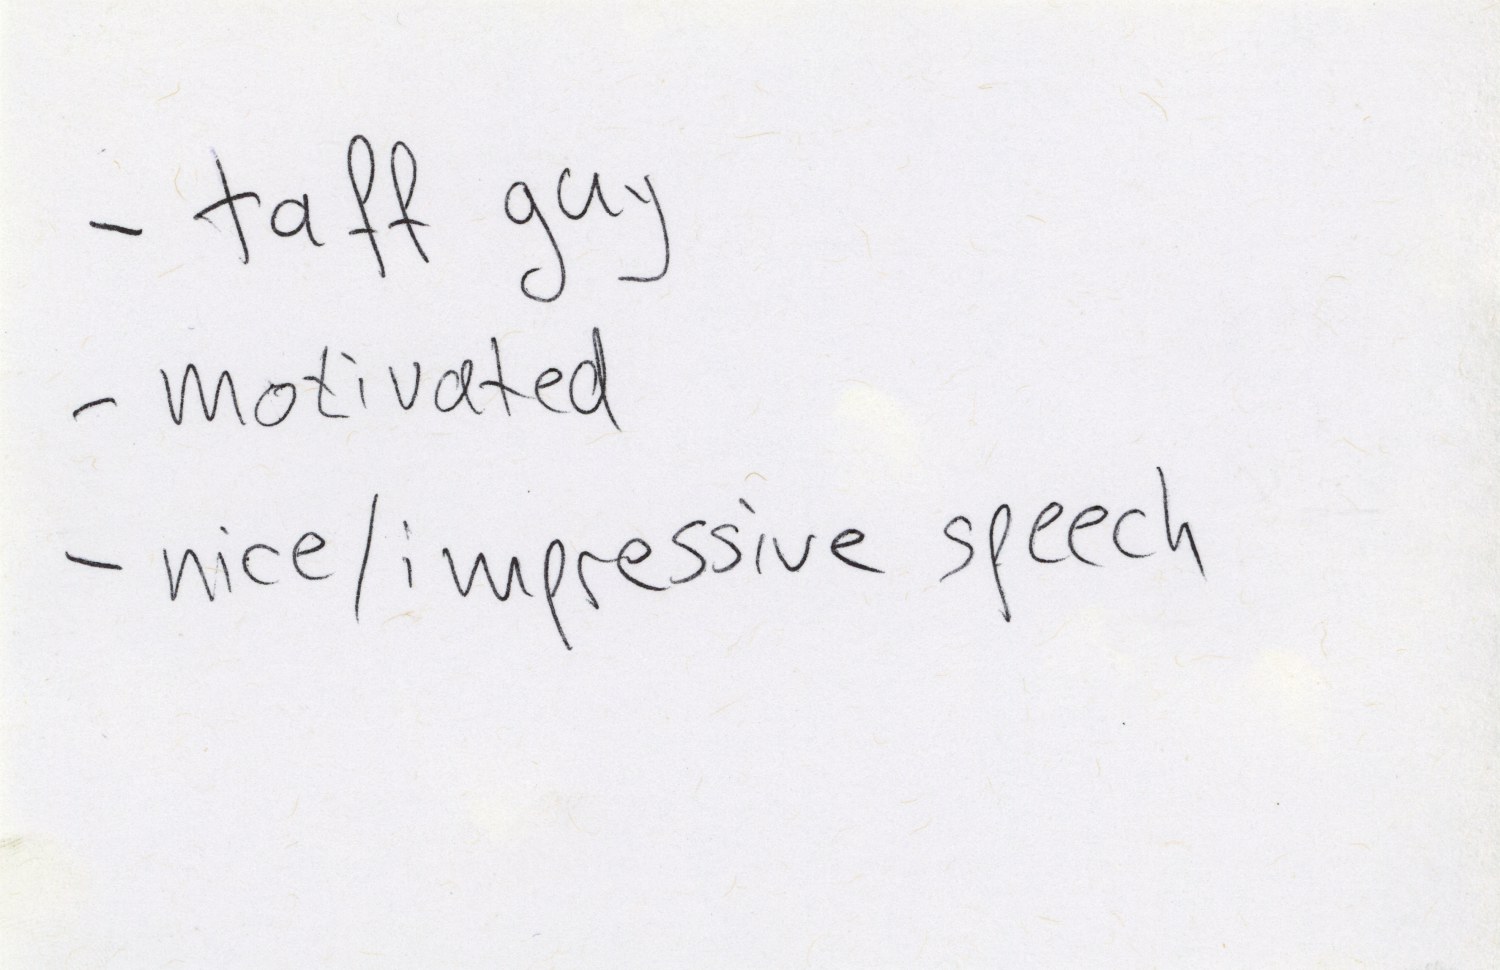 - taff guy
- motivated
- nice/impressive speech